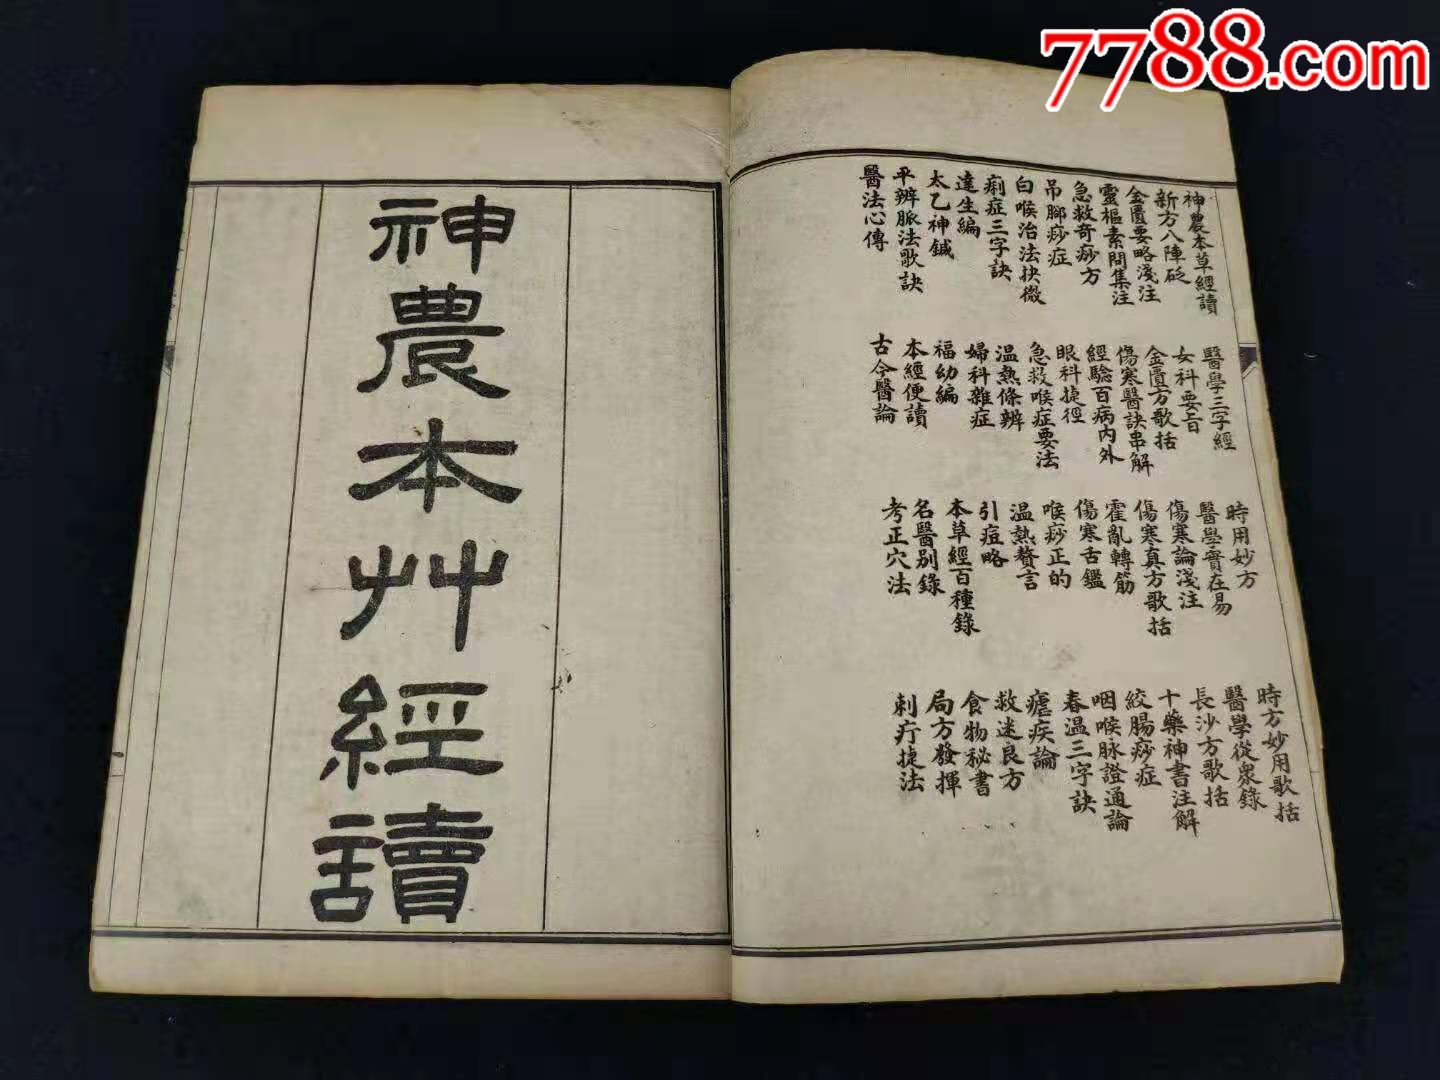 7788.com
神農本草經讀
新方八陣砭
金匱要略淺注
靈樞素問集注
急救奇痧方
吊腳痧症
白喉治法抉微
痢症三字訣
達生編
太乙神鍼
平辨脈法歌訣
醫法心傳
醫學三字經
女科要旨
金匱方歌括
傷寒醫訣串解
經驗百病內外
眼科捷徑
急救喉症要法
溫熱條辨
婦科雜症
福幼編
本經便讀
古今醫論
時用妙方
醫學實在易
傷寒論淺注
傷寒真方歌括
霍亂轉筋
傷寒舌鑑
喉痧正的
溫熱贅言
引痘略
本草經百種錄
名醫別錄
考正穴法
時方妙用歌括
醫學從衆錄
長沙方歌括
十藥神書注解
絞腸痧症
咽喉脉證通論
春温三字訣
瘧疾論
救迷良方
食物秘書
局方發揮
刺疔捷法
神農本艸經讀